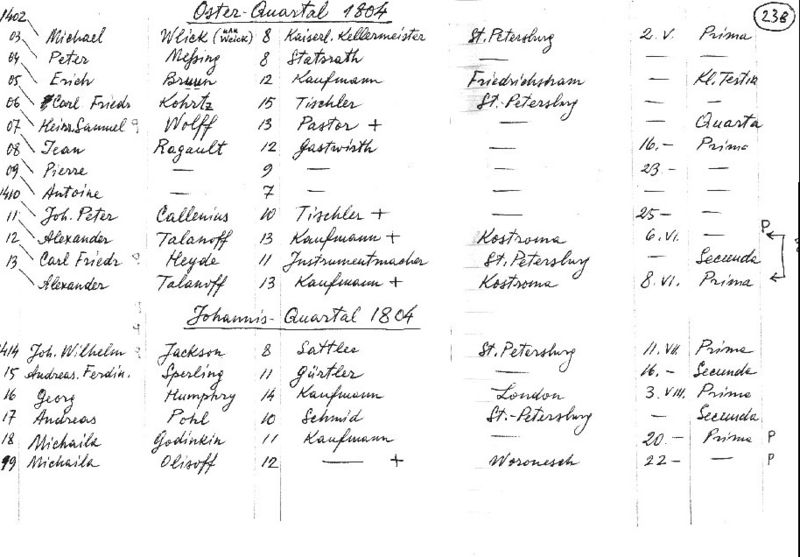 Oster-Quartal 1804 23B
1402 03 Michael Wlick (Weick) 8 Kaiserl. Kellermeister St. Petersburg 2. V. Prima
04 Peter Meßing 8 Statsrath — — —
05 Erich Bruun 12 Kaufmann Friedrichsham — Kl. Testia
06 Carl Friedr Kohrtz 15 Tischler St.-Petersburg — —
07 Heinr. Samuel Wolff 13 Pastor + — — Quarta
08 Jean Ragault 12 Gastwirth — 16.- Prima
09 Pierre — 9 — — 23 - —
1410 Antoine — 7 — — — —
11 Joh. Peter Callenius 10 Tischler + — 25- —
12 Alexander Talanoff 13 Kaufmann + Kostroma 6. VI. — P
13 Carl Friedr Heyde 11 Instrumentmacher St. Petersburg — Secunda
Alexander Talanoff 13 Kaufmann + Kostroma 8. VI. Prima
Johannis-Quartal 1804
1414 Joh. Wilhelm Jackson 8 Sattler St. Petersburg 11. VII. Prima
15 Andreas. Ferdin. Sperling 11 Gürtler — 16.- Secunda
16 Georg Humphry 14 Kaufmann London 3. VIII. Prima
17 Andreas Pohl 10 Schmid St.-Petersburg — Secunda
18 Michaila Godinkin 11 Kaufmann — 20.- Prima P
19 Michaila Olisoff 12 — + Woronesch 22- — P